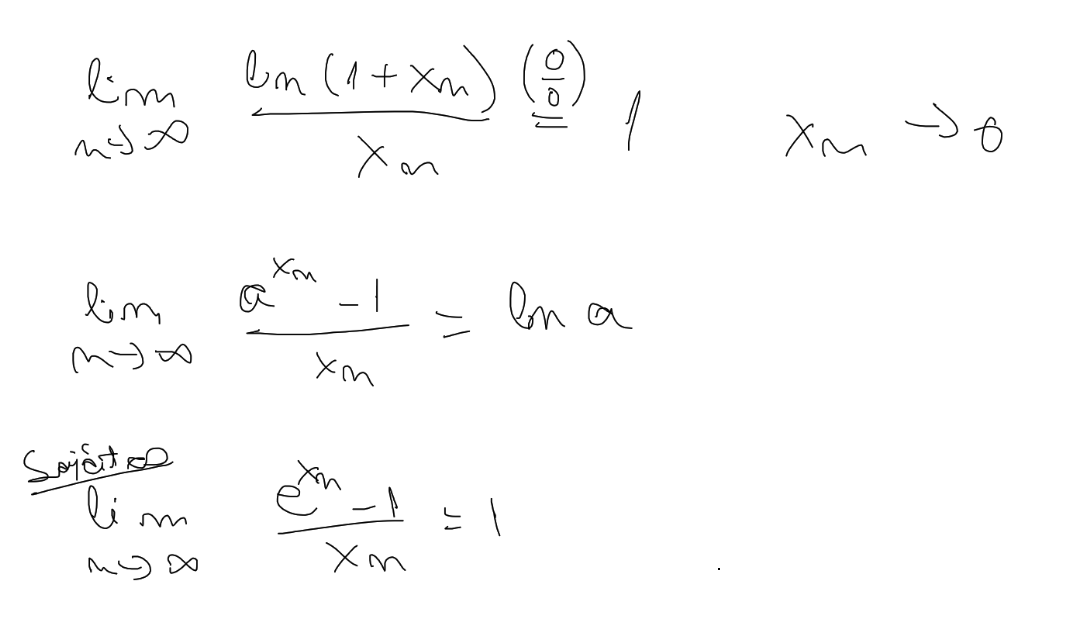 lim n→∞ ln(1+xn)/xn (0/0)= 1 xn → 0
lim n→∞ (a^xn − 1)/xn = ln a
lim n→∞ (e^xn − 1)/xn = 1